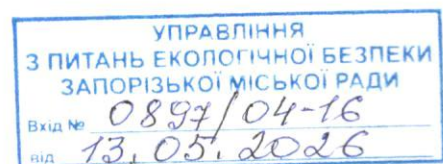 УПРАВЛІННЯ
З ПИТАНЬ ЕКОЛОГІЧНОЇ БЕЗПЕКИ
ЗАПОРІЗЬКОЇ МІСЬКОЇ РАДИ
Вхід № 0897/04-16
від 13.05.2026